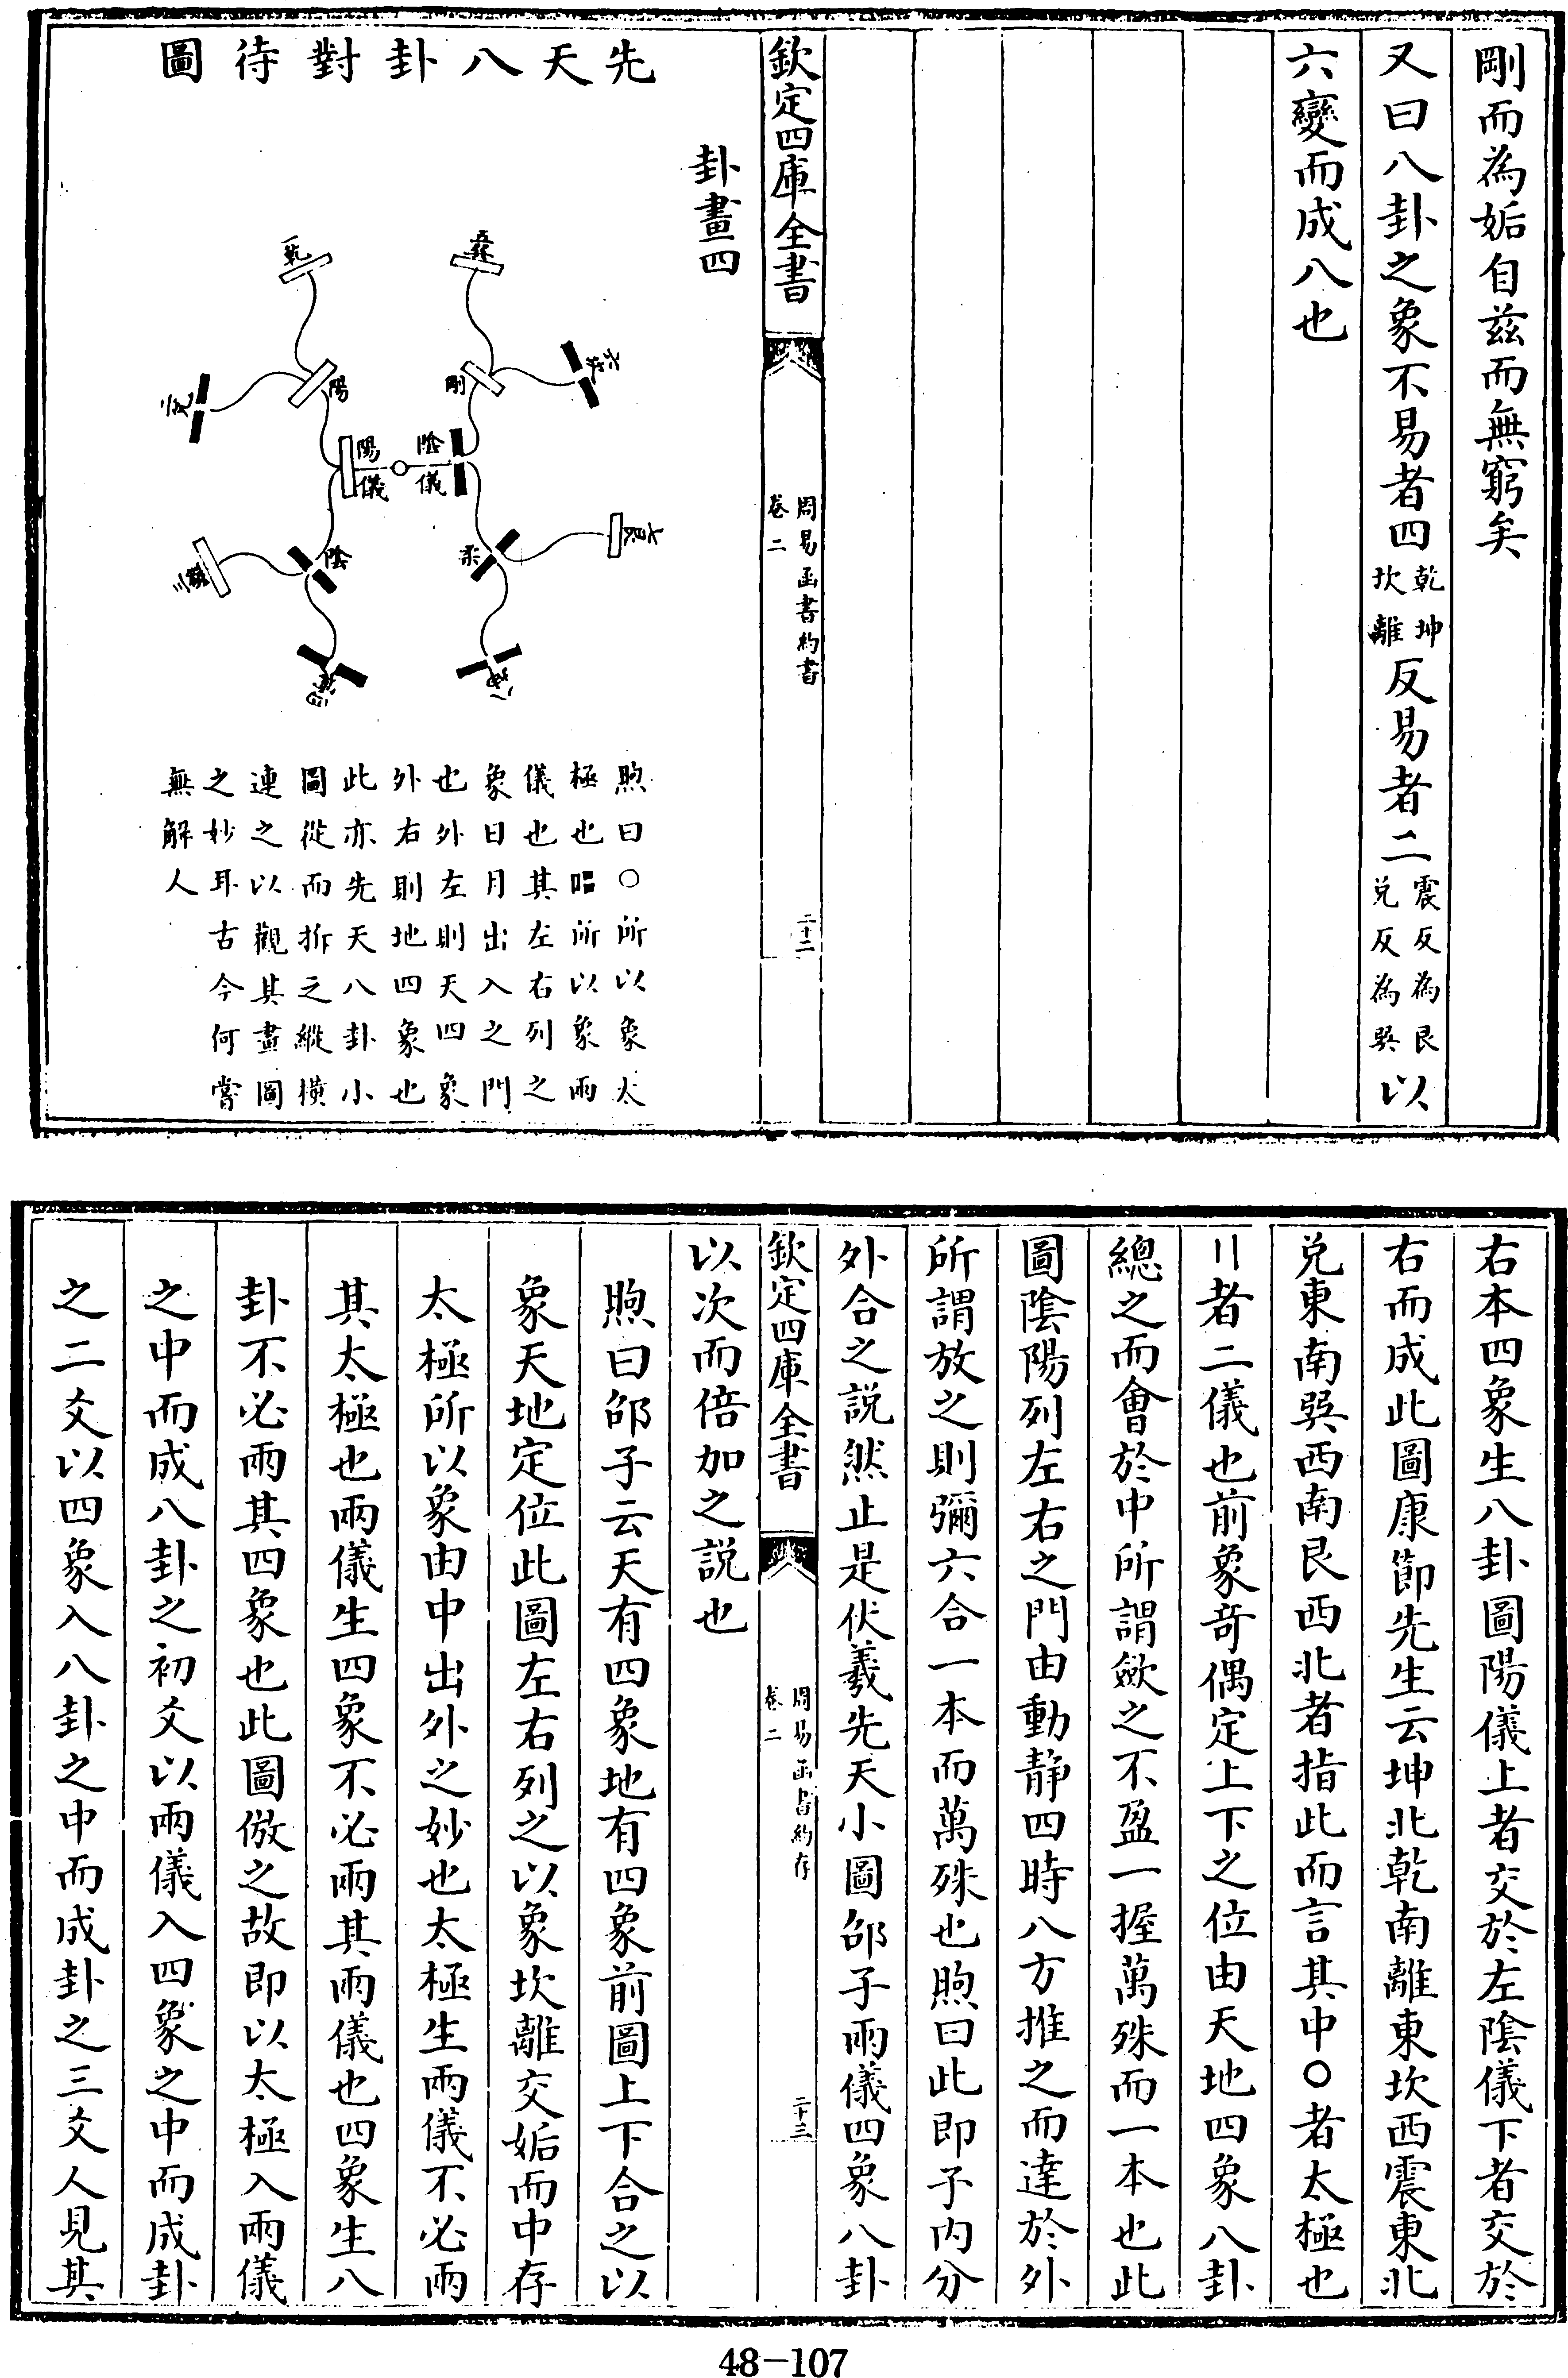 剛而為姤自兹而無窮矣
又曰八卦之象不易者四乾坤坎離反易者二震反為艮兑反為巽以
六變而成八也
欽定四庫全書
周易函書約書
卷二
二十二
卦畫四
先天八卦對待圖
一乾
二兑
三離
四震
五巽
六坎
七艮
八坤
陽
剛
陽儀
陰儀
陰
柔
煦曰○所以象太
極也⚋所以象兩
儀也其左右列之
象日月出入之門
也外左則天四象
外右則地四象也
此亦先天八卦小
圖從而拆之縱橫
連之以觀其畫圖
之妙耳古今何嘗
無解人
右本四象生八卦圖陽儀上者交於左陰儀下者交於
右而成此圖康節先生云坤北乾南離東坎西震東北
兑東南巽西南艮西北者指此而言其中○者太極也
〡〢者二儀也前象奇偶定上下之位由天地四象八卦
總之而會於中所謂歛之不盈一握萬殊而一本也此
圖陰陽列左右之門由動静四時八方推之而達於外
所謂放之則彌六合一本而萬殊也煦曰此即子内分
外合之説然止是伏羲先天小圖邵子兩儀四象八卦
欽定四庫全書
周易函書約存
卷二
二十三
以次而倍加之説也
煦曰邵子云天有四象地有四象前圖上下合之以
象天地定位此圖左右列之以象坎離交姤而中存
太極所以象由中出外之妙也太極生兩儀不必兩
其太極也兩儀生四象不必兩其兩儀也四象生八
卦不必兩其四象也此圖倣之故即以太極入兩儀
之中而成八卦之初爻以兩儀入四象之中而成卦
之二爻以四象入八卦之中而成卦之三爻人見其
48-107